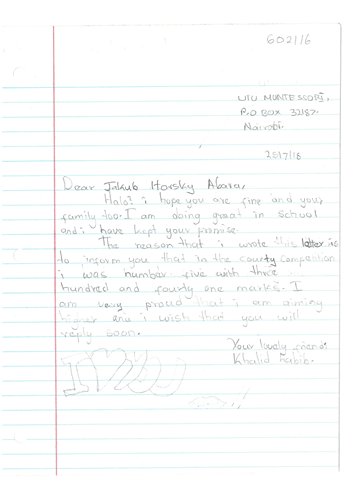 602116
UTU MONTESSORI,
P.O BOX 32187
Nairobi.
25/7/16
Dear Jakub Horsky Abara,
Halo? i hope you are fine and your
family too. I am doing great in school
and i have kept your promise.
The reason that i wrote this letter is
to inform you that in the county compention
i was number five with three
hundred and fourty one marks. I
am very proud that i am aiming
higher and i wish that you will
reply soon.
Your lovely friend.
Khalid habib.